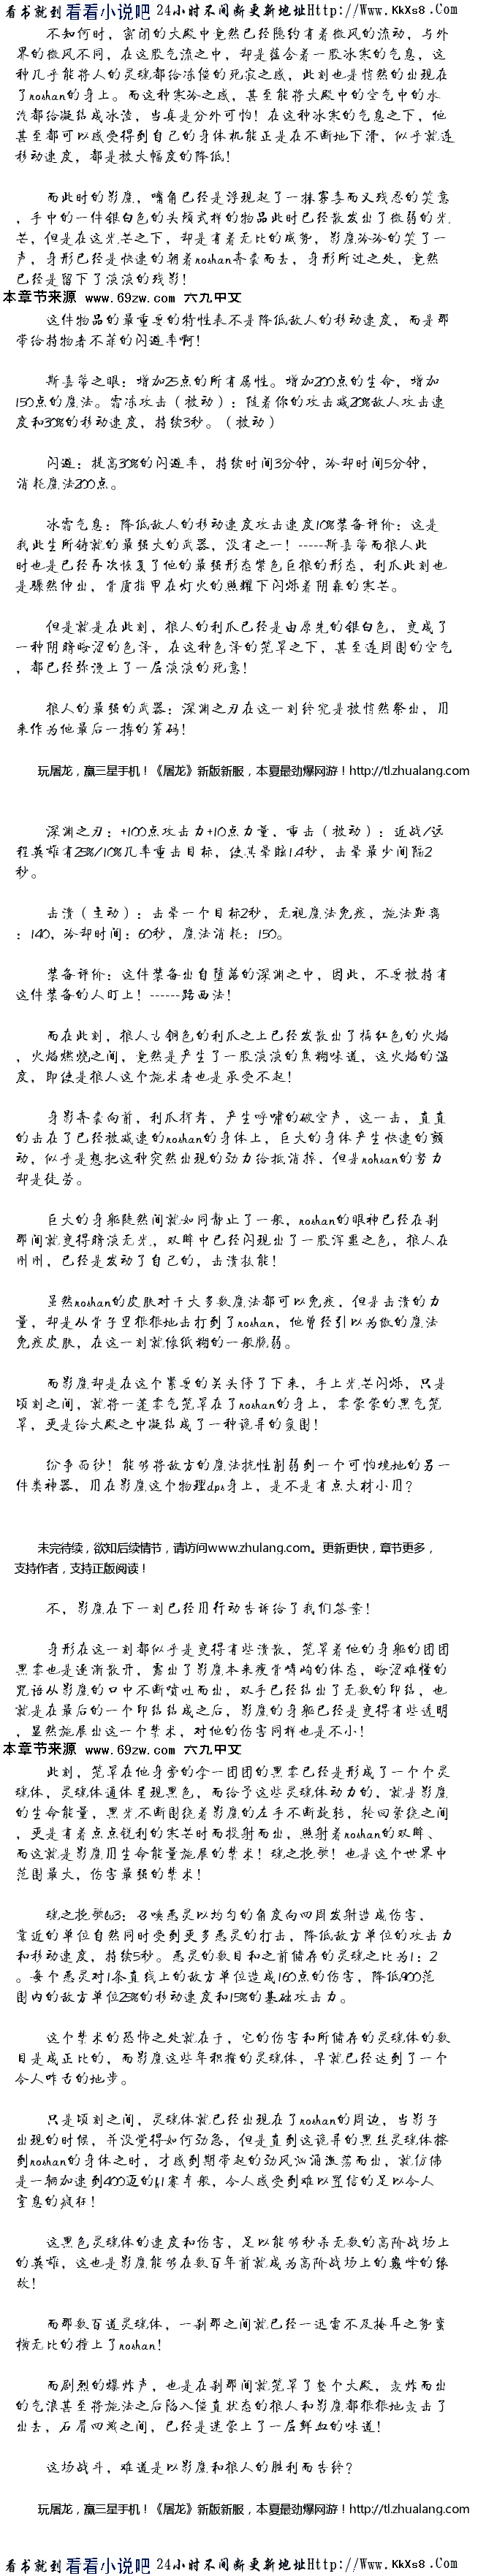 看书就到 看看小说吧 24小时不间断更新地址Http://Www.KkXs8.Com
不知何时，密闭的大殿中竟然已经隐约有着微风的流动，与外
界的微风不同，在这股气流之中，却是蕴含着一股冰寒的气息，这
种几乎能将人的灵魂都给冻僵的死寂之感，此刻也是悄然的出现在
了roshan的身上。而这种寒冷之感，甚至能将大殿中的空气中的水
汽都给凝结成冰渣，当真是分外可怕！在这种冰寒的气息之下，他
甚至都可以感受得到自己的身体机能正是在不断地下滑，似乎就连
移动速度，都是被大幅度的降低！
而此时的影魔，嘴角已经是浮现起了一抹雾喜而又残忍的笑意
，手中的一件银白色的头颅式样的物品此时已经散发出了微弱的光
芒，但是在这光芒之下，却是有着无比的威势，影魔冷冷的笑了一
声，身形已经是快速的朝着roshan齐袭而去，身形所过之处，竟然
已经是留下了淡淡的残影！
本章节来源 www.69zw.com 六九中文
这件物品的最重要的特性表不是降低敌人的移动速度，而是那
带给持物者不菲的闪避率啊！
斯嘉蒂之眼：增加25点的所有属性。增加200点的生命，增加
150点的魔法。霜冻攻击（被动）：随着你的攻击减20%敌人攻击速
度和30%的移动速度，持续3秒。（被动）
闪避：提高30%的闪避率，持续时间3分钟，冷却时间5分钟，
消耗魔法200点。
冰霜气息：降低敌人的移动速度攻击速度10%装备评价：这是
我此生所铸就的最强大的武器，没有之一！-----斯嘉蒂而狼人此
时也是已经再次恢复了他的最强形态紫色巨狼的形态，利爪此刻也
是骤然伸出，骨质指甲在灯火的照耀下闪烁着阴森的寒芒。
但是就是在此刻，狼人的利爪已经是由原先的银白色，变成了
一种阴暗晦涩的色泽，在这种色泽的笼罩之下，甚至连周围的空气
，都已经弥漫上了一层淡淡的死意！
狼人的最强的武器：深渊之刃在这一刻终究是被悄然祭出，用
来作为他最后一搏的筹码！
玩屠龙，赢三星手机！《屠龙》新版新服，本夏最劲爆网游！http://tl.zhualang.com
深渊之刃：+100点攻击力+10点力量，重击（被动）：近战/远
程英雄有25%/10%几率重击目标，使其晕眩1.4秒，击晕最少间隔2
秒。
击溃（主动）：击晕一个目标2秒，无视魔法免疫，施法距离
：140，冷却时间：60秒，魔法消耗：150。
装备评价：这件装备出自堕落的深渊之中，因此，不要被持有
这件装备的人盯上！------路西法！
而在此刻，狼人古铜色的利爪之上已经发散出了橘红色的火焰
，火焰燃烧之间，竟然是产生了一股淡淡的焦糊味道，这火焰的温
度，即使是狼人这个施术者也是承受不起！
身影齐袭向前，利爪挥舞，产生呼啸的破空声，这一击，直直
的击在了已经被减速的roshan的身体上，巨大的身体产生快速的颤
动，似乎是想把这种突然出现的劲力给抵消掉，但是rohsan的努力
却是徒劳。
巨大的身躯陡然间就如同静止了一般，roshan的眼神已经在刹
那间就变得暗淡无光，双眸中已经闪现出了一股浑噩之色，狼人在
刚刚，已经是发动了自己的，击溃技能！
虽然roshan的皮肤对于大多数魔法都可以免疫，但是击溃的力
量，却是从骨子里狠狠地击打到了roshan，他曾经引以为傲的魔法
免疫皮肤，在这一刻就像纸糊的一般脆弱。
而影魔却是在这个紧要的关头停了下来，手上光芒闪烁，只是
顷刻之间，就将一蓬雾气笼罩在了roshan的身上，雾蒙蒙的黑气笼
罩，更是给大殿之中凝结成了一种诡异的氛围！
纷争面纱！能够将敌方的魔法抗性削弱到一个可怕境地的另一
件类神器，用在影魔这个物理dps身上，是不是有点大材小用？
未完待续，欲知后续情节，请访问www.zhulang.com。更新更快，章节更多，
支持作者，支持正版阅读！
不，影魔在下一刻已经用行动告诉给了我们答案！
身形在这一刻都似乎是变得有些溃散，笼罩着他的身躯的团团
黑雾也是逐渐散开，露出了影魔本来瘦骨嶙峋的体态，晦涩难懂的
咒语从影魔的口中不断喷吐而出，双手已经结出了无数的印结，也
就是在最后的一个印结结成之后，影魔的身躯已经是变得有些透明
，显然施展出这一个禁术，对他的伤害同样也是不小！
本章节来源 www.69zw.com 六九中文
此刻，笼罩在他身旁的拿一团团的黑雾已经是形成了一个个灵
魂体，灵魂体通体呈现黑色，而给予这些灵魂体动力的，就是影魔
的生命能量，黑光不断围绕着影魔的左手不断旋转，轮回萦绕之间
，更是有着点点锐利的寒芒时而投射而出，照射着roshan的双眸、
而这就是影魔用生命能量施展的禁术！魂之挽歌！也是这个世界中
范围最大，伤害最强的禁术！
魂之挽歌lv3：召唤恶灵以均匀的角度向四周发射造成伤害，
靠近的单位自然同时受到更多恶灵的打击，降低敌方单位的攻击力
和移动速度，持续5秒。恶灵的数目和之前储存的灵魂之比为1：2
。每个恶灵对1条直线上的敌方单位造成160点的伤害，降低900范
围内的敌方单位25%的移动速度和15%的基础攻击力。
这个禁术的恐怖之处就在于，它的伤害和所储存的灵魂体的数
目是成正比的，而影魔这些年积攒的灵魂体，早就已经达到了一个
令人咋舌的地步。
只是顷刻之间，灵魂体就已经出现在了roshan的周边，当影子
出现的时候，并没觉得如何劲急，但是直到这诡异的黑丝灵魂体擦
到roshan的身体之时，才感到期带起的劲风汹涌激荡而出，就仿佛
是一辆加速到400迈的f1赛车般，令人感受到难以置信的足以令人
窒息的疯狂！
这黑色灵魂体的速度和伤害，足以能够秒杀无数的高阶战场上
的英雄，这也是影魔能够在数百年前就成为高阶战场上的巅峰的缘
故！
而那数百道灵魂体，一刹那之间就已经一迅雷不及掩耳之势蛮
横无比的撞上了roshan！
而剧烈的爆炸声，也是在刹那间就笼罩了整个大殿，轰炸而出
的气浪甚至将施法之后陷入僵直状态的狼人和影魔都狠狠地轰击了
出去，石屑四溅之间，已经是迷蒙上了一层鲜血的味道！
这场战斗，难道是以影魔和狼人的胜利而告终？
玩屠龙，赢三星手机！《屠龙》新版新服，本夏最劲爆网游！http://tl.zhualang.com
看书就到 看看小说吧 24小时不间断更新地址Http://Www.KkXs8.Com